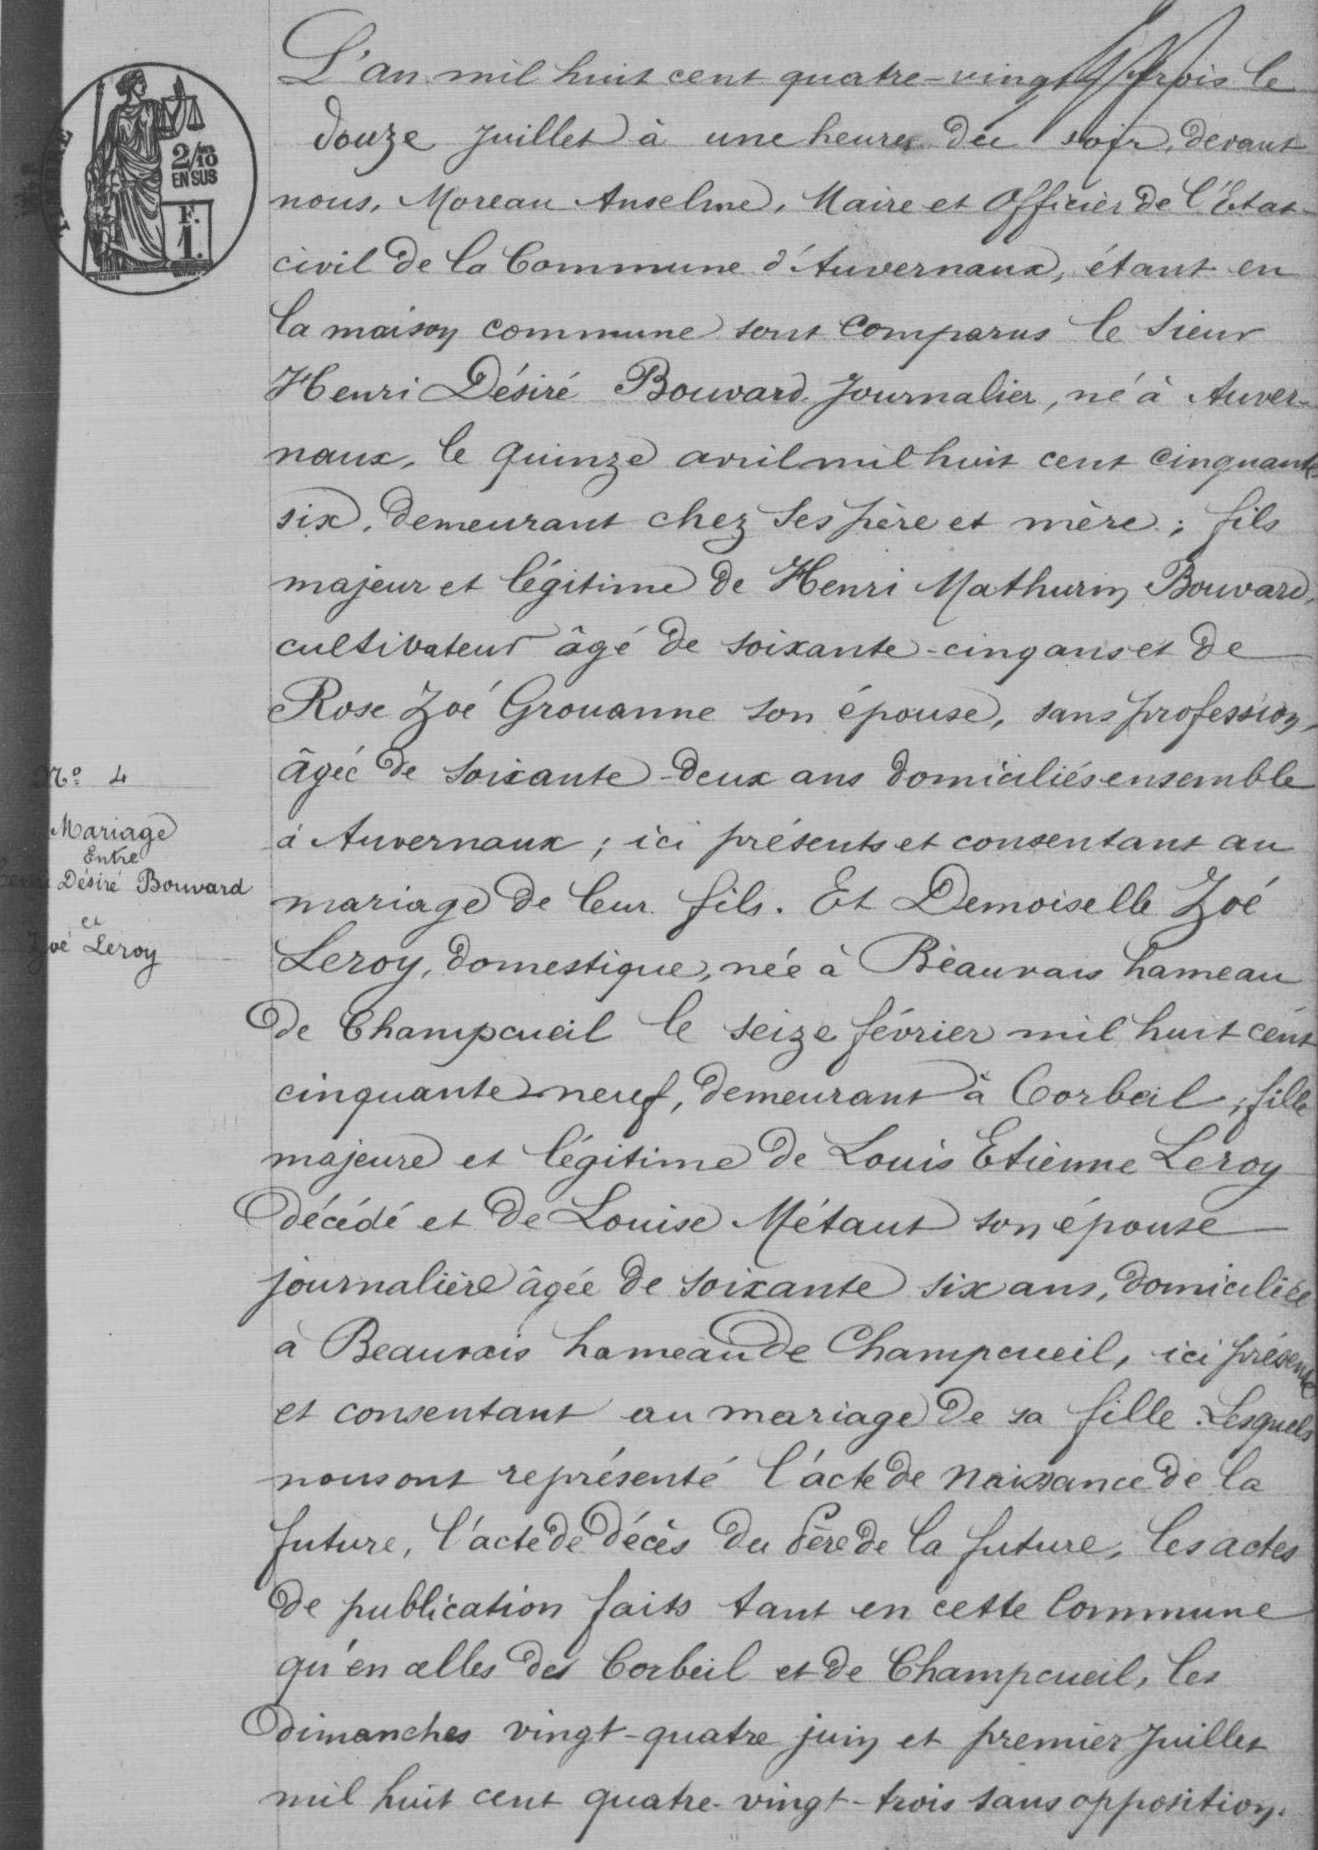 L'an mil huit cent quatre-vingt trois le
douze Juillet à une heure du soir, devant
nous, Moreau Anselme, Maire et Officier de l'Etat
civil de la Commune d'Auvernaux, étant en
la maison commune sont comparus le sieur
Henri Désiré Bouvard Journalier, né à Auver-
naux, le quinze avril mil huit cent cinquante
six, demeurant chez ses père et mère ; fils
majeur et légitime de Henri Mathurin Bouvard,
cultivateur âgé de soixante-cinq ans et de
Rose Zoé Grouanne son épouse, sans profession,
âgée de soixante-deux ans domiciliés ensemble
à Auvernaux ; ici présents et consentant au
mariage de leur fils. Et Demoiselle Zoé
Leroy, domestique, née à Beauvais hameau
de Champcueil le seize février mil huit cent
cinquante neuf, demeurant à Corbeil ; fille
majeure et légitime de Louis Etienne Leroy
décédé et de Louise Métaut son épouse
journalière âgée de soixante six ans, domiciliée
à Beauvais hameau de Champcueil, ici présente
et consentant au mariage de sa fille. Lesquels
nous ont représenté l'acte de naissance de la
future, l'acte de décès du Père de la future, les actes
de publication faits tant en cette Commune
qu'en celles des Corbeil et de Champcueil, les
dimanches vingt-quatre juin et premier Juillet
mil huit cent quatre-vingt-trois sans opposition.
N° 4
Mariage
Entre
Désiré Bouvard
et
Zoé Leroy
2/10
EN SUS
F.
1.